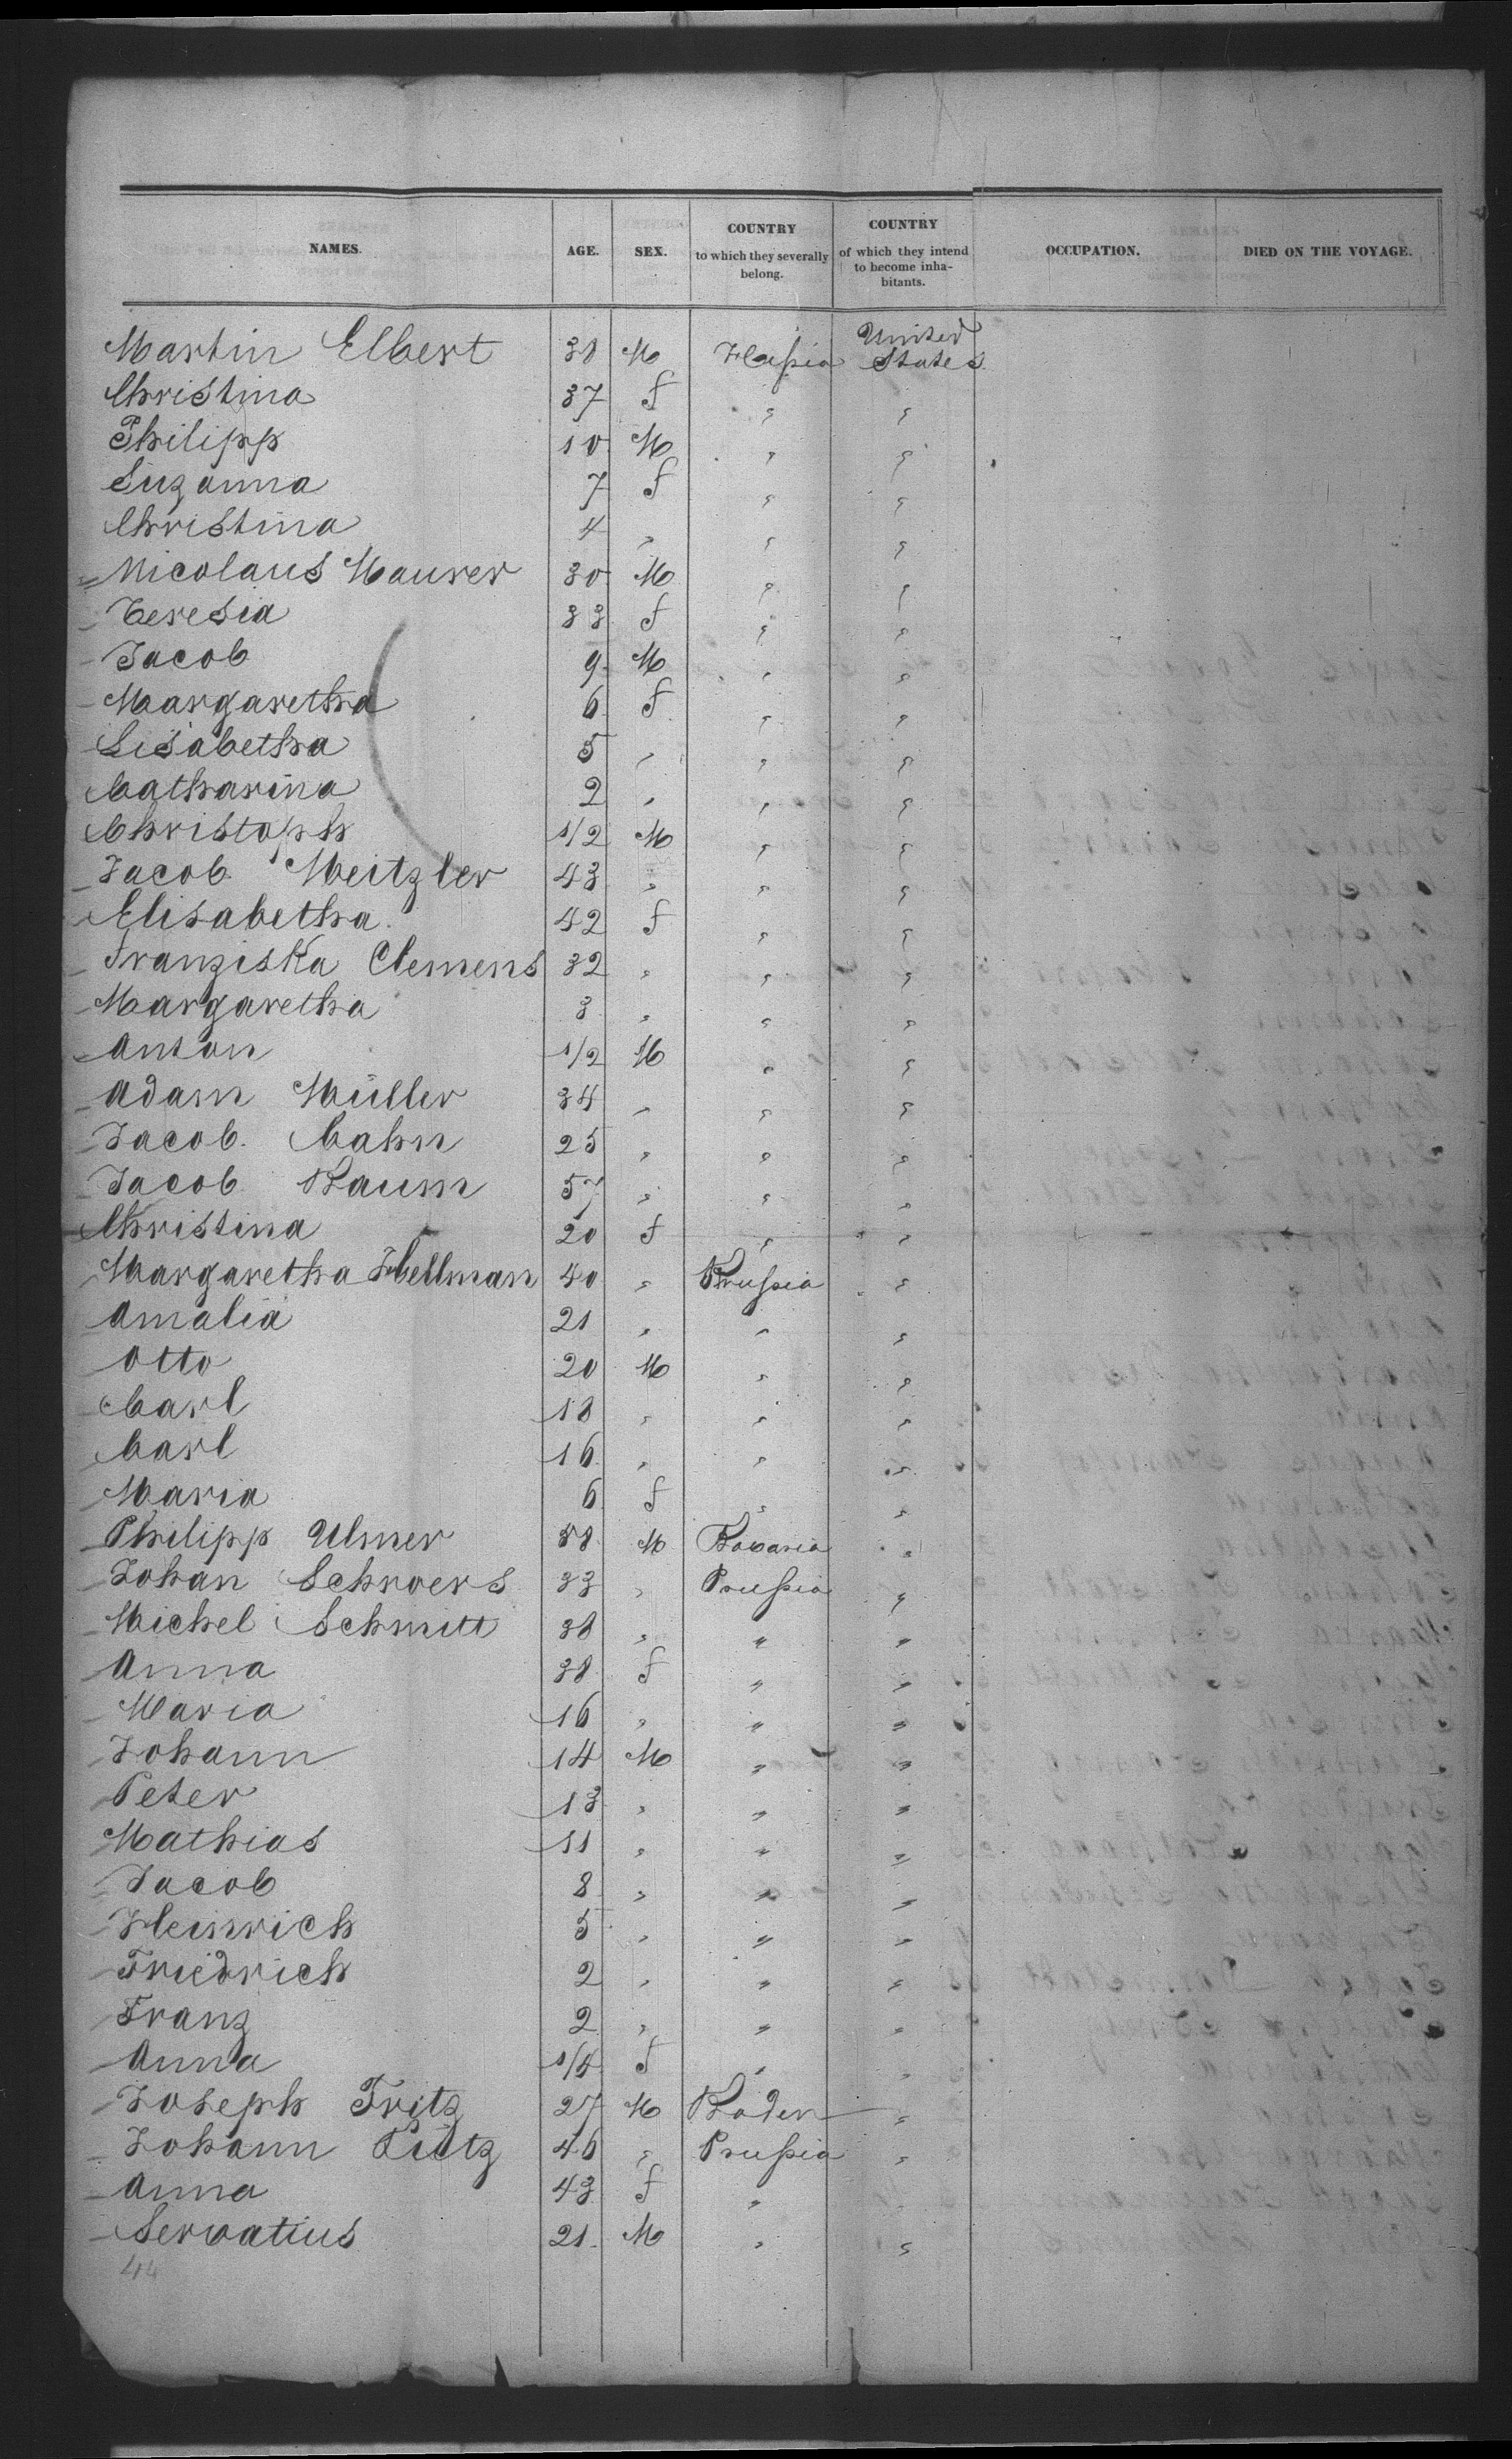 NAMES. AGE. SEX. COUNTRY to which they severally belong. COUNTRY of which they intend to become inhabitants. OCCUPATION. DIED ON THE VOYAGE.
Martin Elbert 38 M Hessia United States
Christina 37 f " "
Philipp 10 M " "
Suzanna 7 f " "
Christina 4 " " "
Nicolaus Maurer 30 M " "
Teresia 33 f " "
Jacob 9 M " "
Margaretha 6 f " "
Lisabetha 5 " " "
Catharina 2 " " "
Christoph 1/2 M " "
Jacob Meitzler 43 " " "
Elisabetha 42 f " "
Franziska Clemens 32 " " "
Margaretha 3 " " "
Anton 1/2 M " "
Adam Müller 34 " " "
Jacob Cahn 25 " " "
Jacob Baum 57 " " "
Christina 20 f " "
Margaretha Hellman 40 " Prussia "
Amalia 21 " " "
Otto 20 M " "
Carl 18 " " "
Carl 16 " " "
Maria 6 f " "
Philipp Ulmer 38 M Bavaria "
Johan Schroers 33 " Prussia "
Michel Schmitt 38 " " "
Anna 38 f " "
Maria 16 " " "
Johann 14 M " "
Peter 13 " " "
Mathias 11 " " "
Jacob 8 " " "
Heinrich 5 " " "
Friedrich 2 " " "
Franz 2 " " "
Anna 1/4 f " "
Joseph Fritz 27 M Baden "
Johann Pütz 46 " Prussia "
Anna 43 f "
Servatius 21 M " "
44